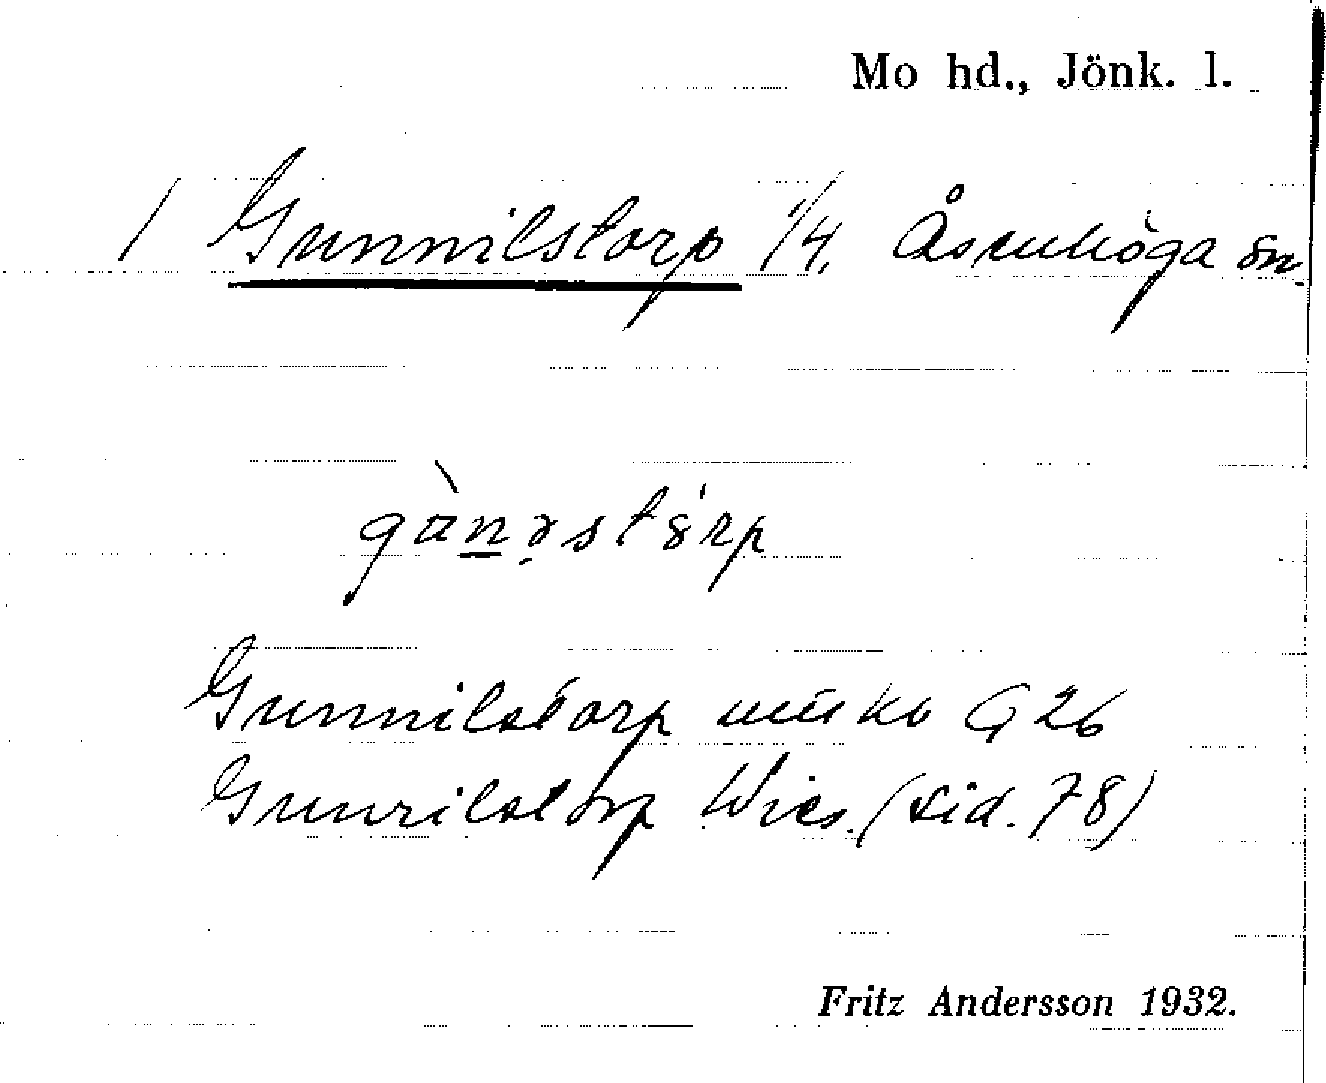 Mo hd., Jönk. l.
/ Gunnilstorp 1/4. Åsenhöga sn.
Gunnilstorp G 26
Gunnilstorp Wies. (sid. 78)
Fritz Andersson 1932.